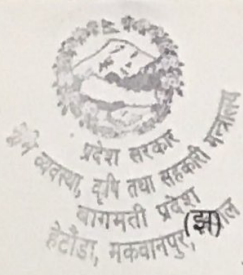 प्रदेश सरकार
भूमि व्यवस्था, कृषि तथा सहकारी मन्त्रालय
बागमती प्रदेश
हेटौंडा, मकवानपुर,
(झ)